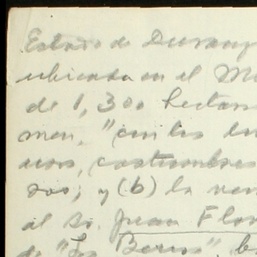 Estado de Durang
ubicada en el M
de 1,300 hectar
men, "con los
usos, costumbres
sos; y (b) la ven
al Sr. Juan Flor
de "Los Berros", b